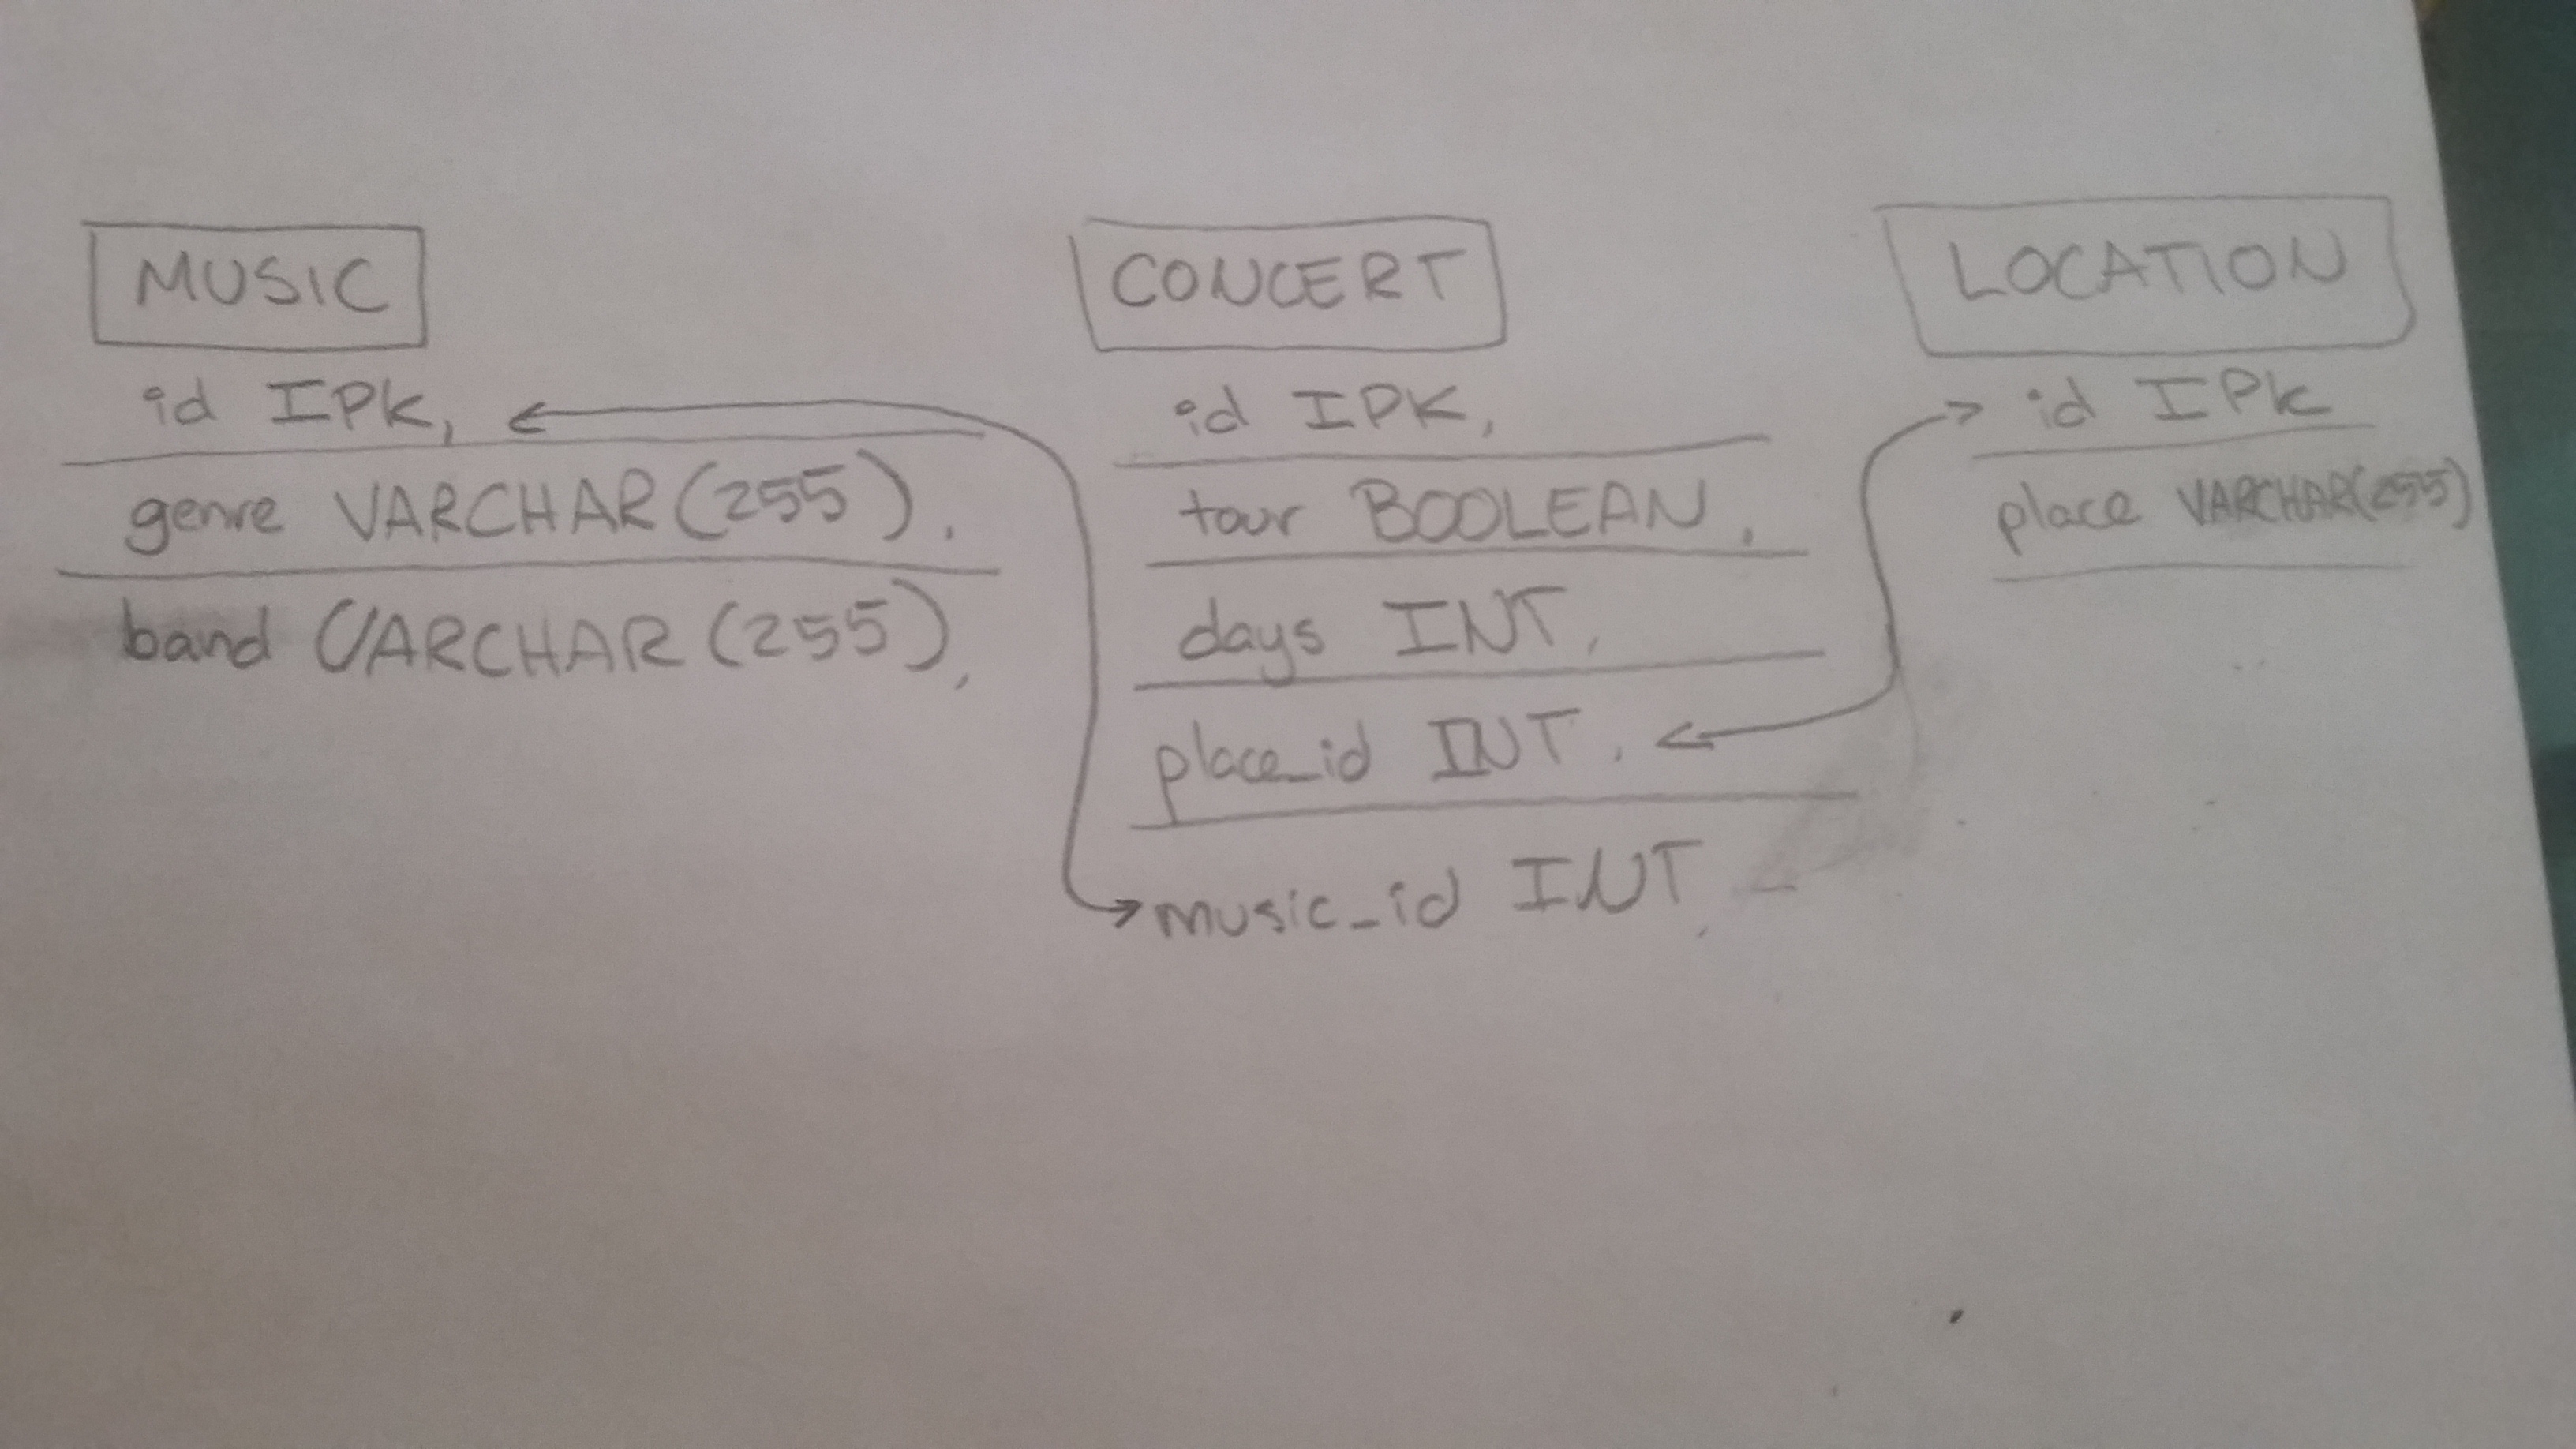 MUSIC
id IPK,
genre VARCHAR(255),
band VARCHAR(255),
CONCERT
id IPK,
tour BOOLEAN,
days INT,
place_id INT,
music_id INT,
LOCATION
id IPK
place VARCHAR(255)